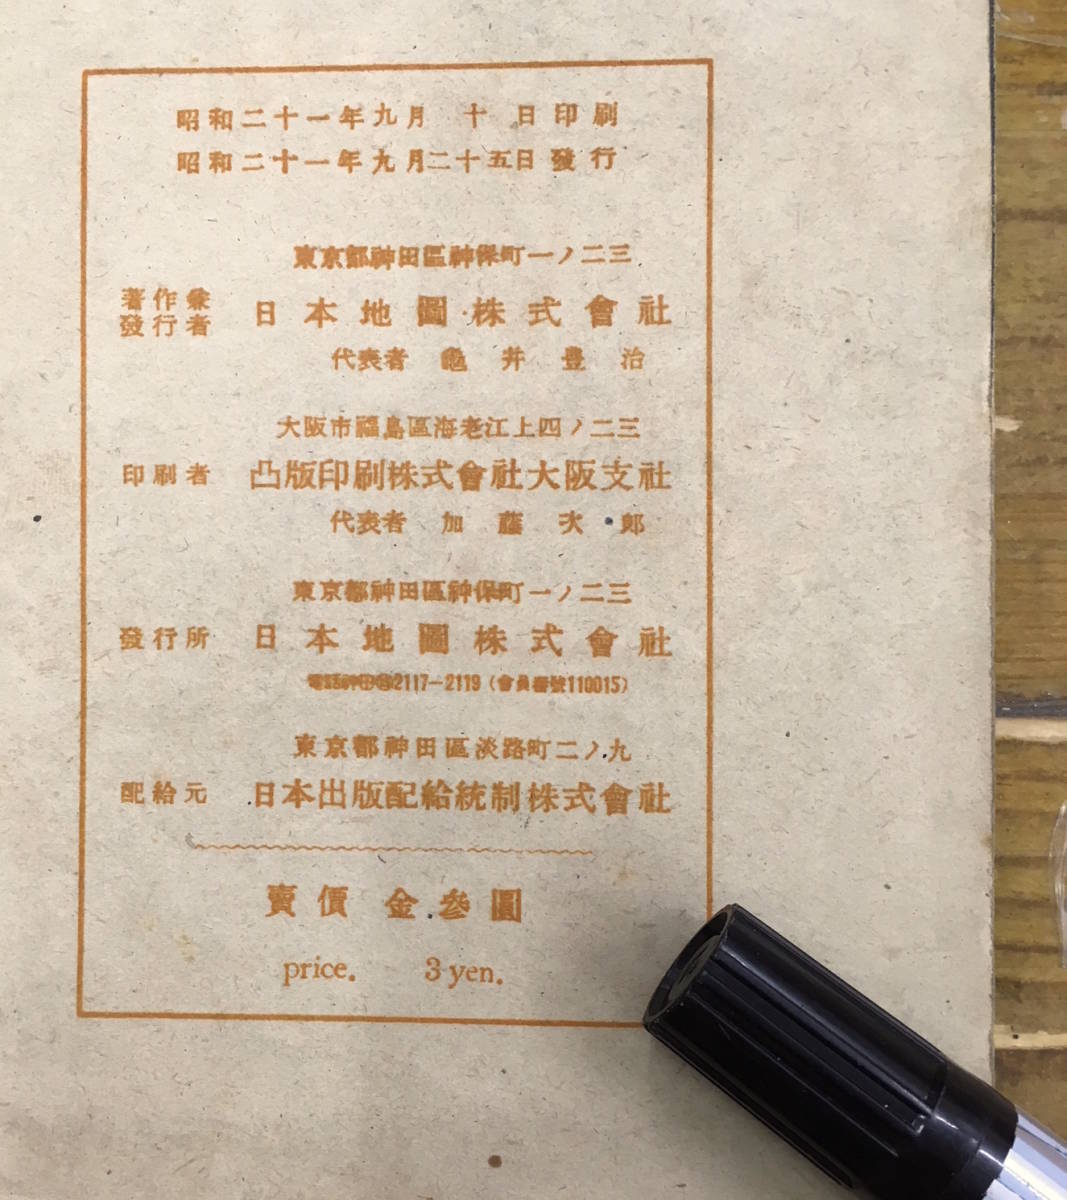 昭和二十一年九月 十 日印刷
昭和二十一年九月二十五日發行
東京都神田區神保町一ノ二三
著作兼
發行者 日本地圖株式會社
代表者 龜井豊治
大阪市福島區海老江上四ノ二三
印刷者 凸版印刷株式會社大阪支社
代表者 加藤次郎
東京都神田區神保町一ノ二三
發行所 日本地圖株式會社
電話神田㉕2117—2119（會員番號110015）
東京都神田區淡路町二ノ九
配給元 日本出版配給統制株式會社
賣價 金参圓
price. 3 yen.